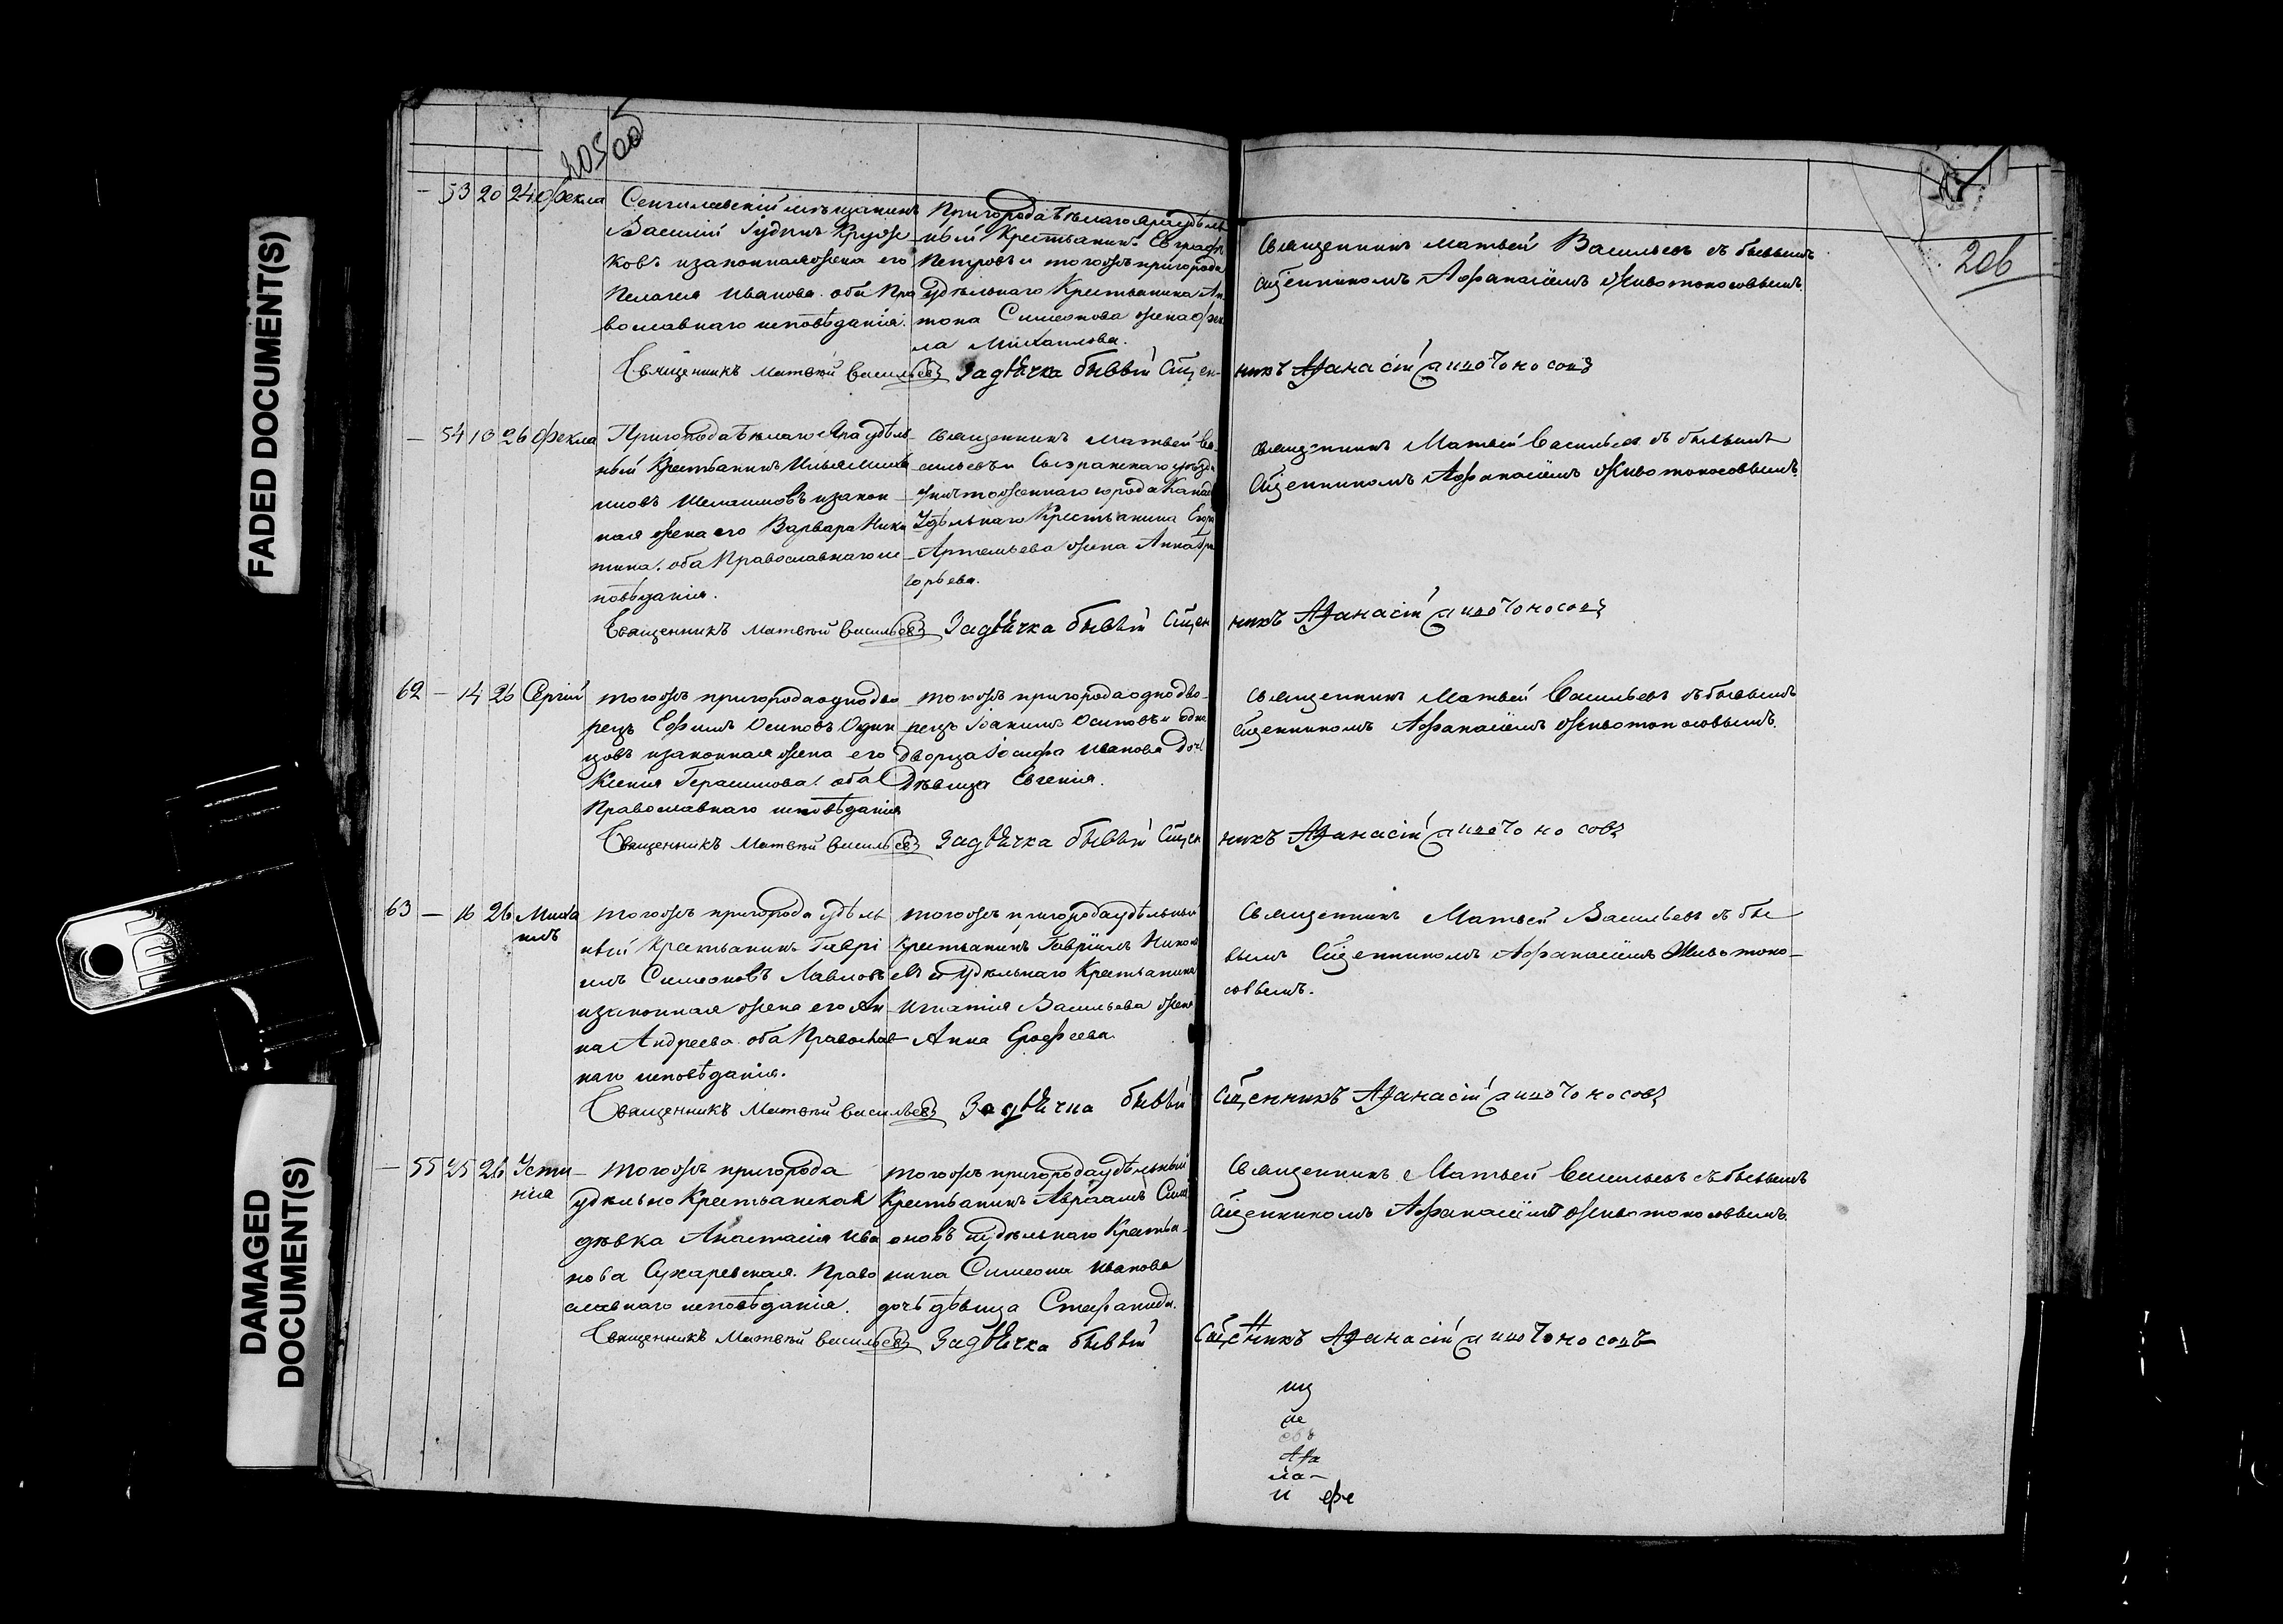 FADED DOCUMENT(S)
DAMAGED
DOCUMENT(S)
205 об
206
— 53 20 24 Ѳекла
Сенгилевскій мѣщанинъ
Василій
ковъ и законная жена его
Пелагея Иванова. оба Пра
вославнаго исповѣданія.
Пригорода Бѣлаго Яра удѣль
ный Крестьянинъ Евграфъ
Петровъ и тогожъ пригорода
удѣльнаго Крестьянина Ан
тона Симеонова жена Ѳек
ла Михаилова.
Священникъ Матвей Васильевъ съ бывшимъ
Сщенникомъ Афанасіемъ Животоносовымъ.
Священникъ Матвѣй Васильевъ Задьячка бывый Сщен
никъ Афанасій Животоносовъ
— 54 13 26 Ѳекла
Пригорода Бѣлаго Яра удѣль
ный Крестьянинъ Илья Миха
иловъ и закон
ная жена его Варвара Ники
тина. оба Православнаго ис
повѣданія.
Священникъ Матвей Ва
сильевъ и Сызранскаго уѣзда
города
Удѣльнаго Крестьянина Егора
Артемьева жена Анна Гри
горьева.
Священникъ Матвей Васильевъ съ бывшимъ
Сщенникомъ Афанасіемъ Животоносовымъ.
Священникъ Матвѣй Васильевъ Задьячка бывый Сщен
никъ Афанасій Животоносовъ
62 — 14 26 Сергій
тогожъ пригорода однодво
рецъ Ефимъ Осиповъ Один
цовъ и законная жена его
Ксенія Герасимова. оба
Православнаго исповѣданія
тогожъ пригорода однодво
рецъ Іоакимъ Осиповъ и одно
дворца Іосифа Иванова дочь
Дѣвица Евгенія.
Священникъ Матвей Васильевъ съ бывшимъ
Сщенникомъ Афанасіемъ Животоносовымъ.
Священникъ Матвѣй Васильевъ Задьячка бывый Сщен
никъ Афанасій Животоносовъ
63 — 16 26 Миха
илъ
тогожъ пригорода удѣль
ный Крестьянинъ Гаврі
илъ Симеоновъ Павловъ
и законная жена его Ан
на Андреева. оба Православ
наго исповѣданія.
тогожъ пригорода удѣльный
Крестьянинъ Гавріилъ Никола
евъ и удѣльнаго Крестьянина
Игнатія Васильева жена
Анна Ерофеева.
Священникъ Матвей Васильевъ съ бы
вымъ Сщенникомъ Афанасіемъ Животоно-
совымъ.
Священникъ Матвѣй Васильевъ Задьячка бывый
Сщенникъ Афанасій Животоносовъ
— 55 25 26 Усти
нія
тогожъ пригорода
удѣльно Крестьянская
дѣвка Анастасія Ива
нова Сухаревская. Право
славнаго исповѣданія.
тогожъ пригорода удѣльный
Крестьянинъ Авраамъ Сим
еоновъ и удѣльнаго Крестья
нина Симеона Иванова
дочь дѣвица Стефанида.
Священникъ Матвей Васильевъ съ бывшимъ
Сщенникомъ Афанасіемъ Животоносовымъ.
Священникъ Матвѣй Васильевъ Задьячка бывый
Сщенникъ Афанасій Животоносовъ